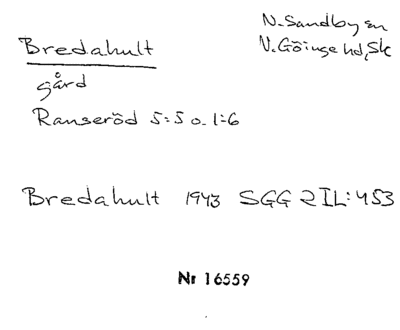 Bredahult
N. Sandby sn
V. Göinge hd, Sk
gård
Ranseröd 5:5 o. 1:6
Bredahult 1943 SGG 2 IL:453
Nr 16559